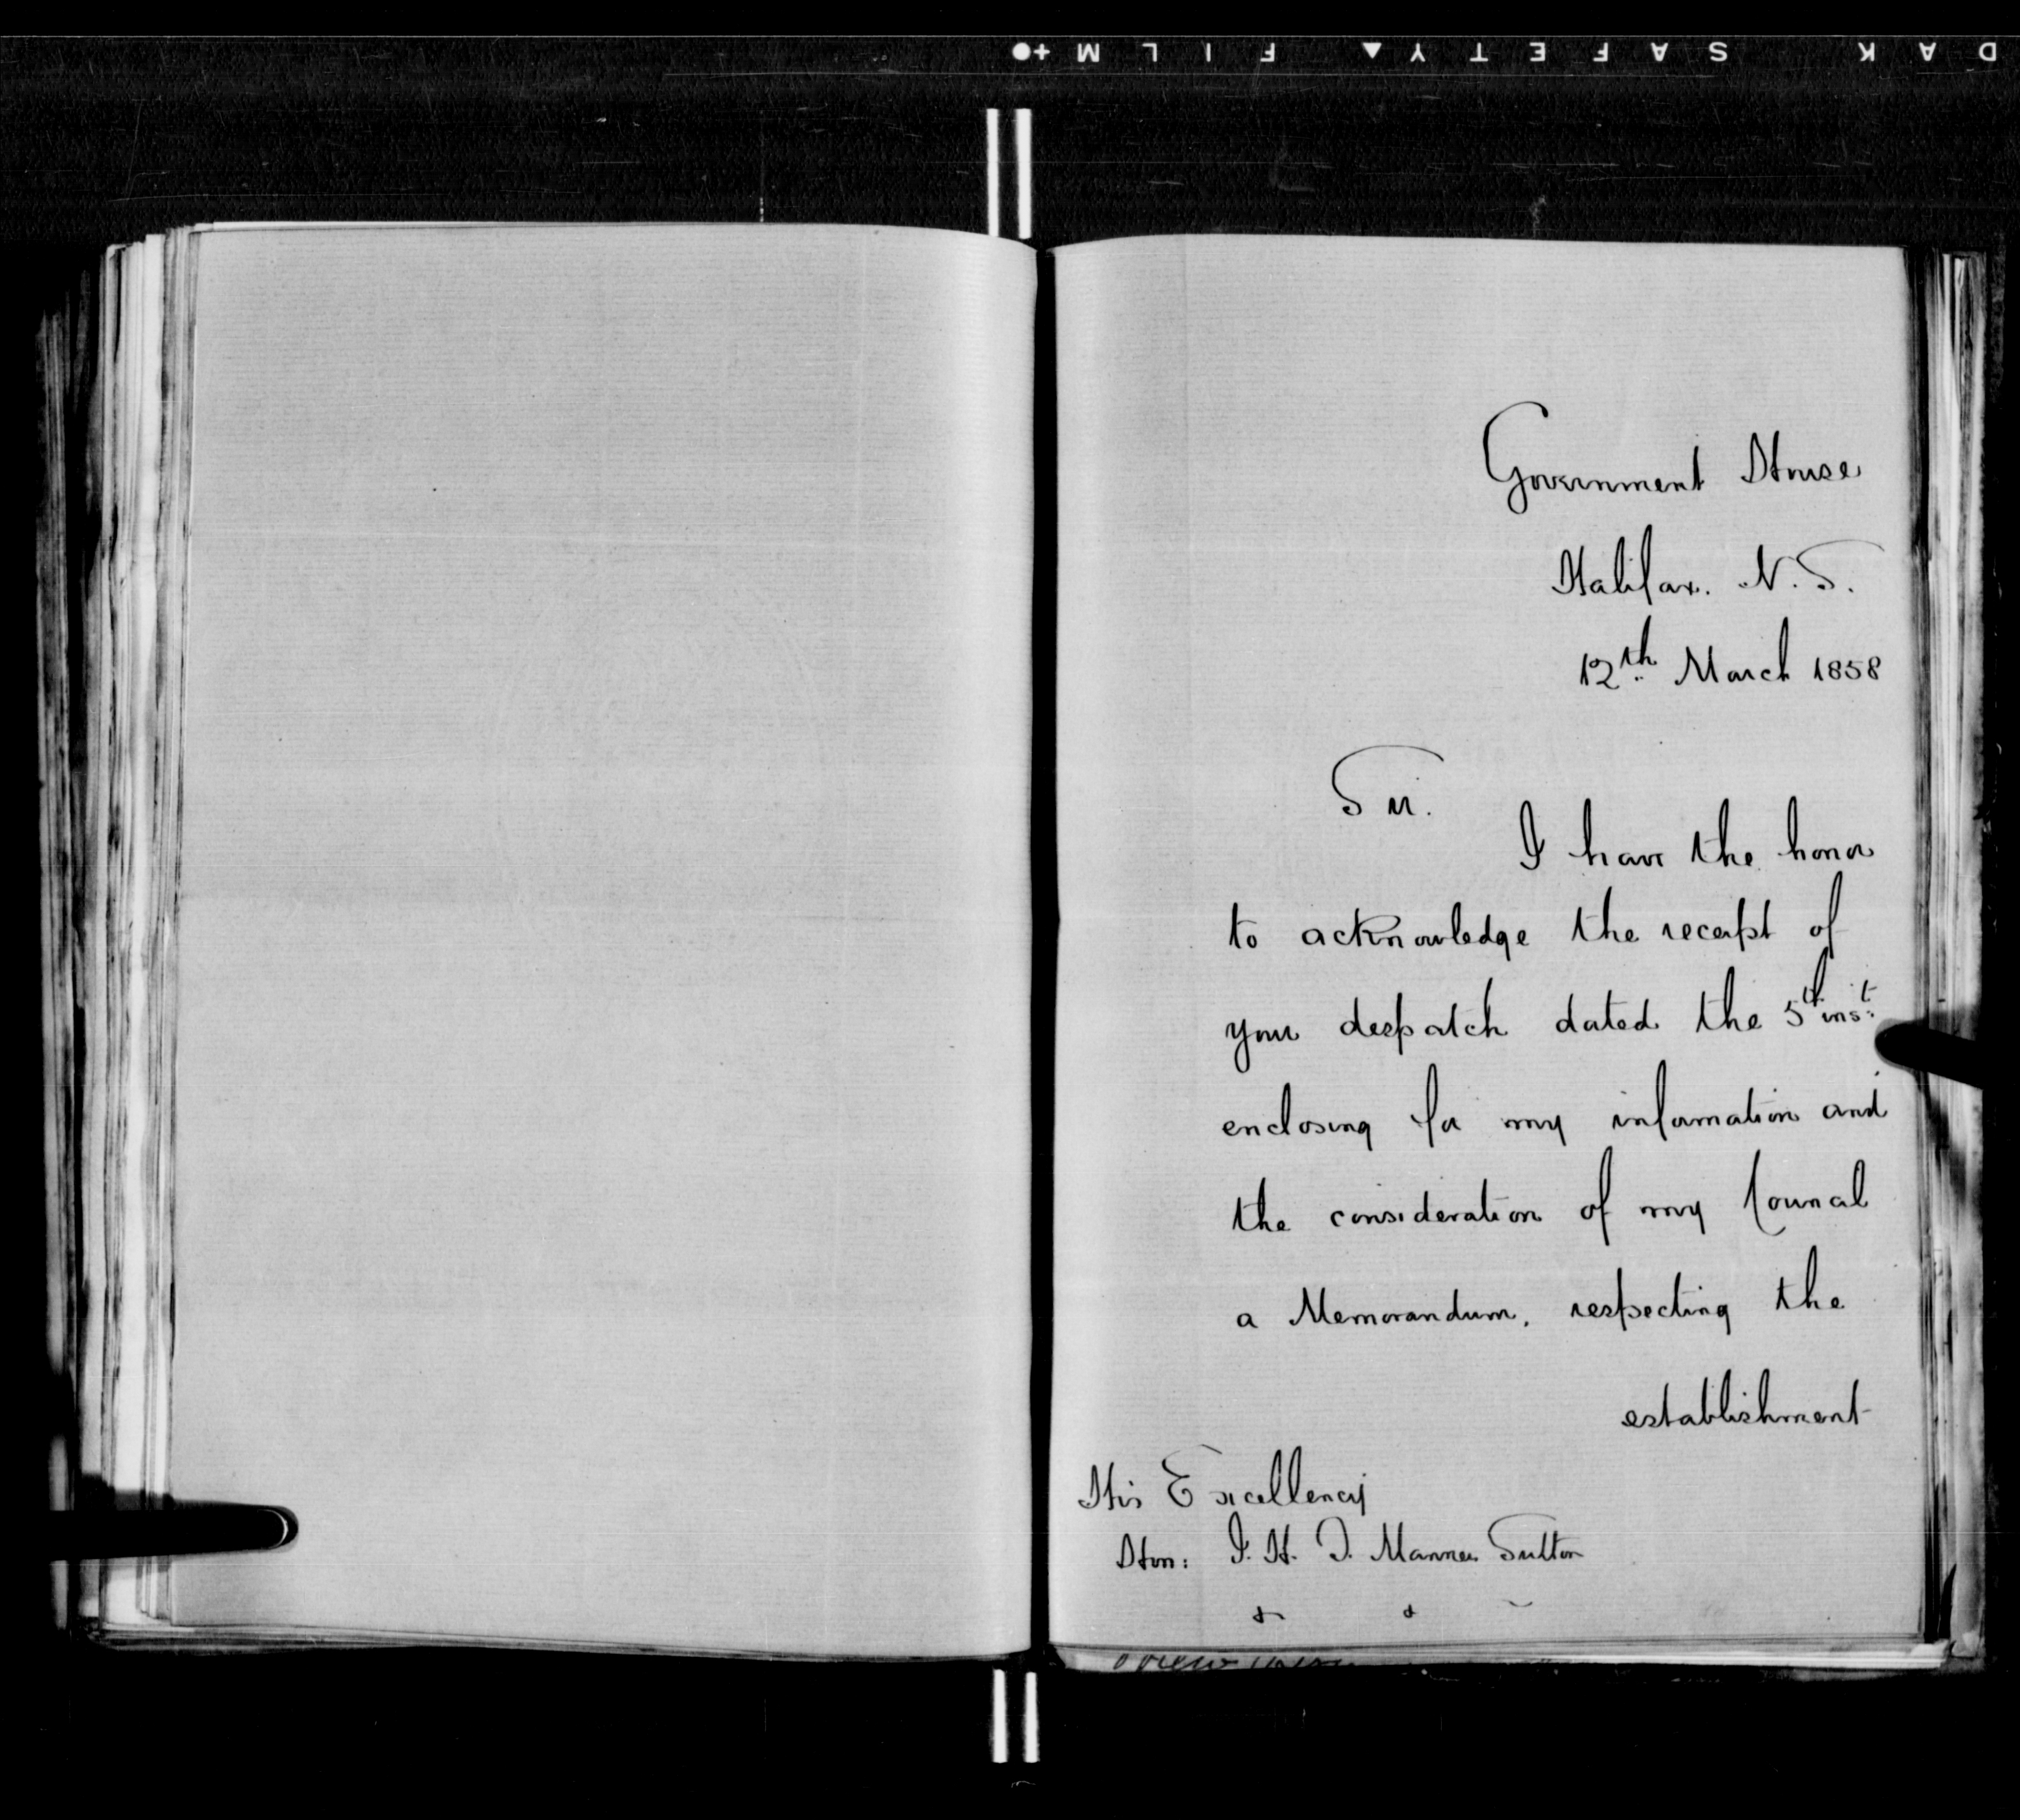 DAK SAFETY▲ FILM +●
Government House
Halifax. N.S.
12th March 1858
Sir.
I have the honor
to acknowledge the receipt of
your despatch dated the 5th inst:
enclosing for my information and
the consideration of my Council
a Memorandum, respecting the
establishment
His Excellency
Hon: J. H. T. Manners Sutton
& &